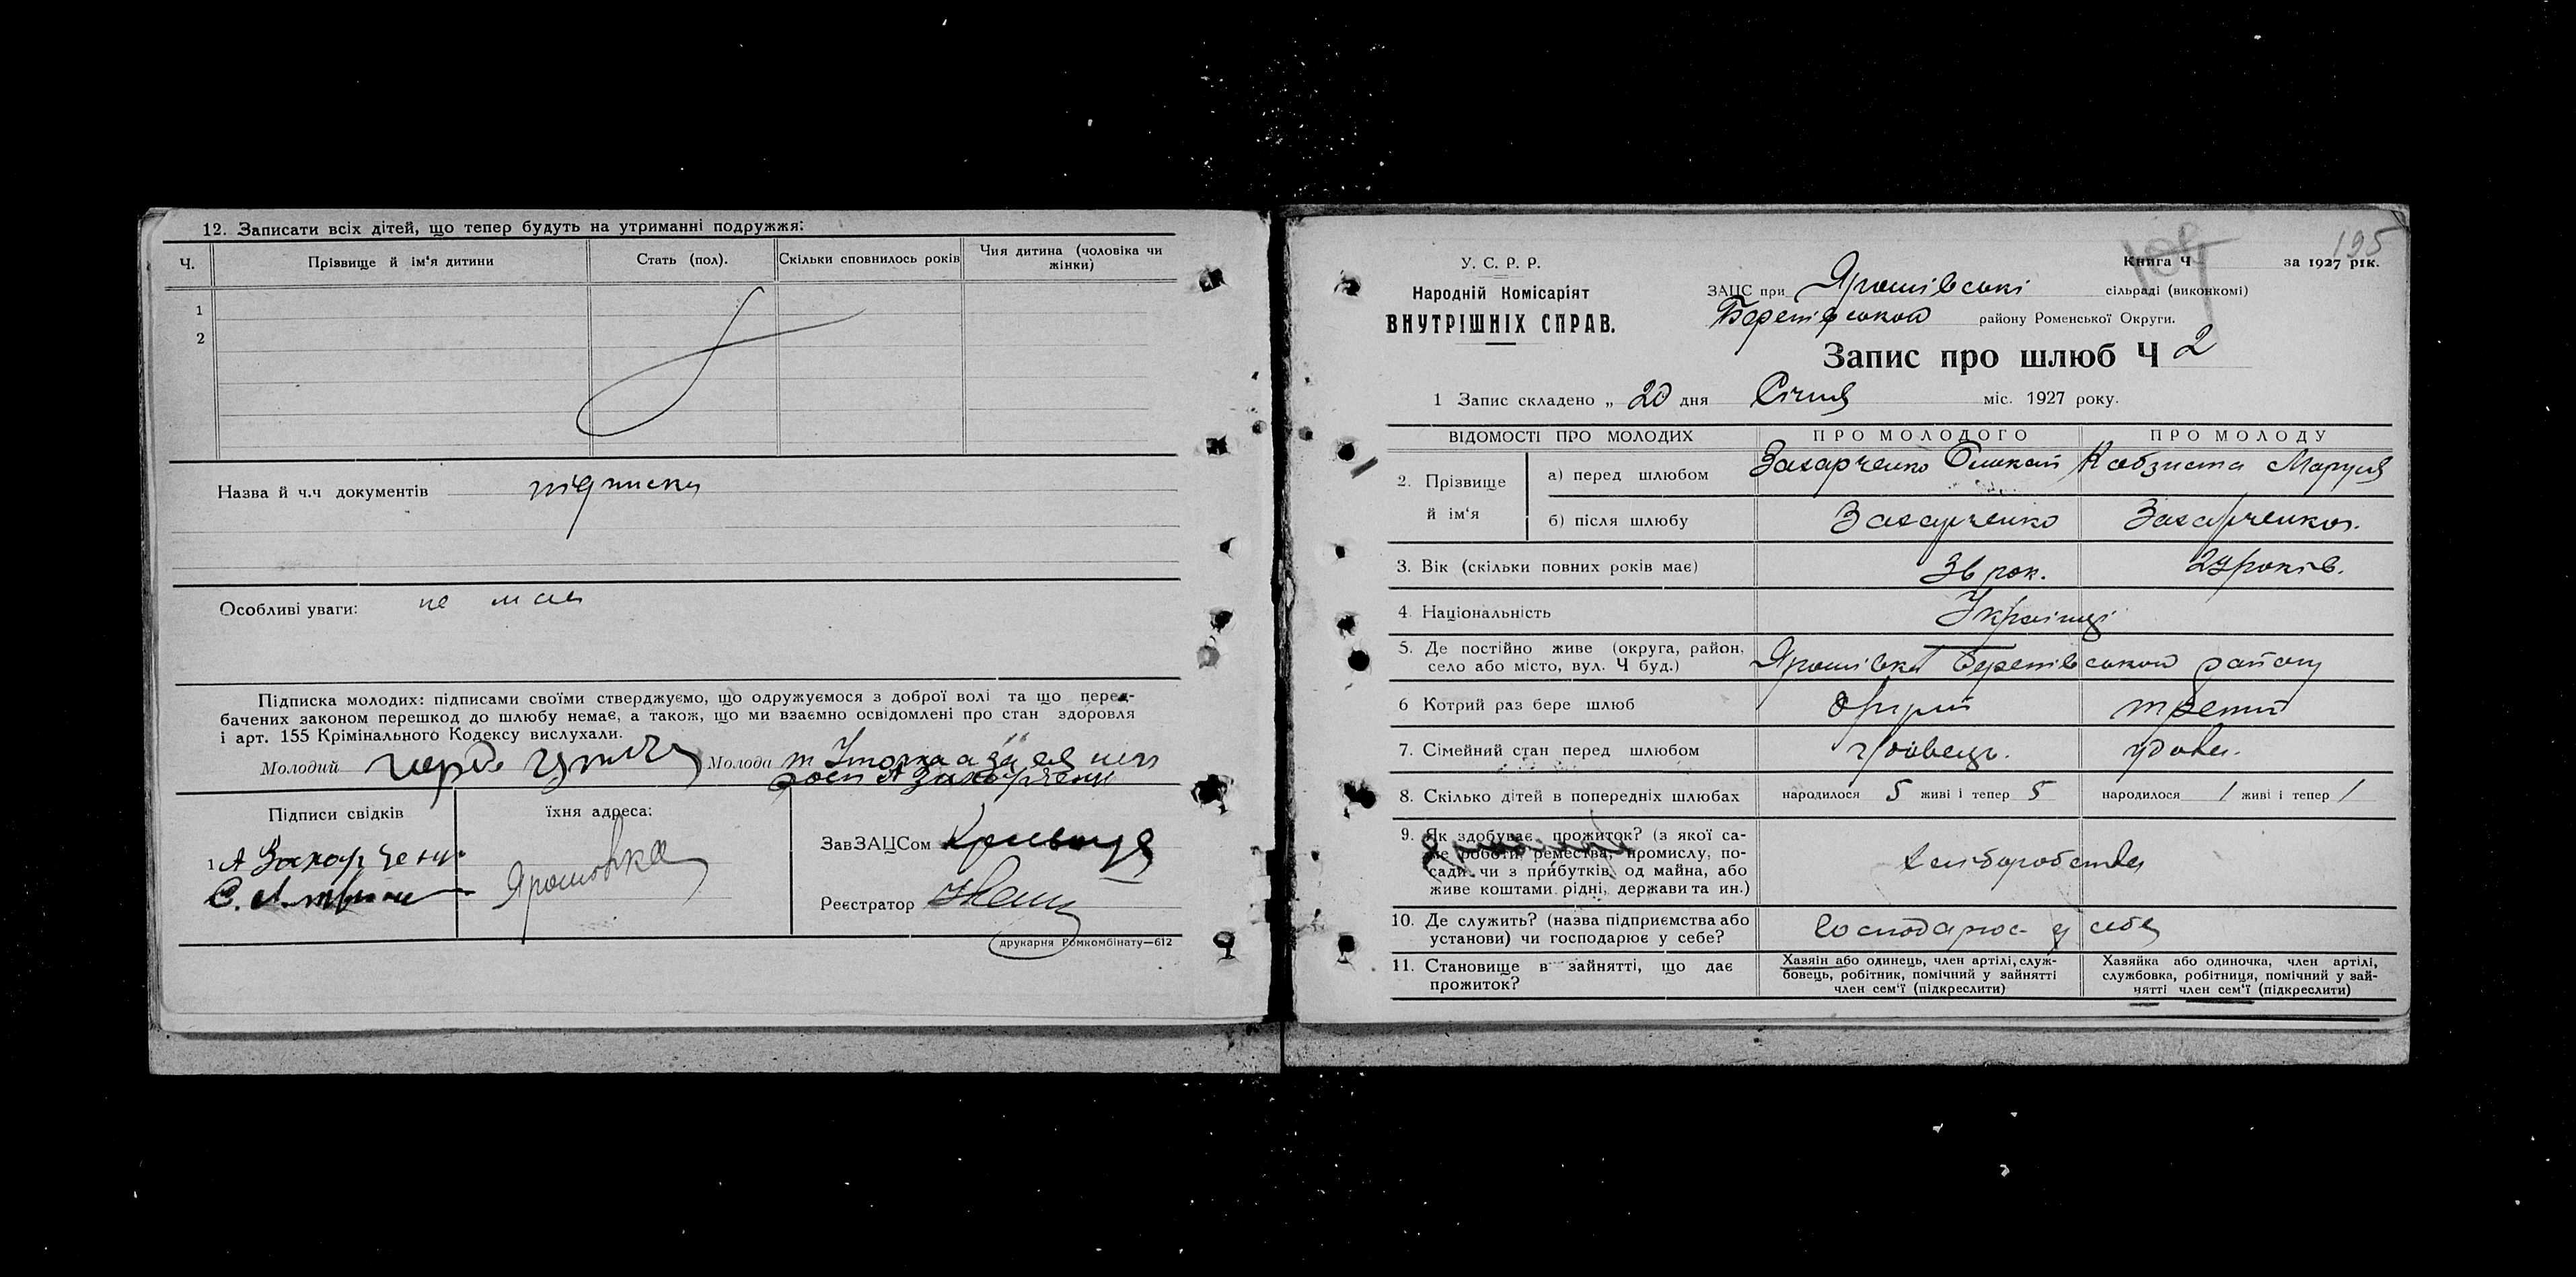 12. Записати всіх дітей, що тепер будуть на утриманні подружжя:
Ч.
Прізвище й ім'я дитини
Стать (пол).
Скільки сповнилось років
Чия дитина (чоловіка чи
жінки)
1
2
Назва й ч.ч документів підписка
Особливі уваги: не має
Підписка молодих: підписами своїми стверджуємо, що одружуємося з доброї волі та що перед-
бачених законом перешкод до шлюбу немає, а також, що ми взаємно освідомлені про стан здоровля
і арт. 155 Крімінального Кодексу вислухали.
Молодий
Молода
Захарченко
Підписи свідків
їхня адреса:
1 А Захарченко
Ярошовка
ЗавЗАЦСом
Реєстратор
друкарня Ромкомбінату—612
195
109
У. С. Р. Р.
Народній Комісаріят
ВНУТРІШНІХ СПРАВ.
Книга Ч за 1927 рік.
ЗАЦС при Ярошівські сільраді (виконкомі)
району Роменської Округи.
Запис про шлюб Ч 2
1 Запис складено „ 20 дня Січня міс. 1927 року.
ВІДОМОСТІ ПРО МОЛОДИХ
ПРО МОЛОДОГО
ПРО МОЛОДУ
2. Прізвище
й ім'я
а) перед шлюбом
Захарченко
Кобзиста Маруся
б) після шлюбу
Захарченко
Захарченко.
3. Вік (скільки повних років має)
36 рок.
29 років.
4. Національність
Українці
5. Де постійно живе (округа, район,
село або місто, вул. Ч буд.)
Ярошівка району
6 Котрий раз бере шлюб
другий
третий
7. Сімейний стан перед шлюбом
удовець.
удова.
8. Скілько дітей в попередніх шлюбах
народилося 5 живі і тепер 5
народилося 1 живі і тепер 1
9. Як здобуває прожиток? (з якої са-
ме роботи, ремества, промислу, по-
сади чи з прибутків, од майна, або
живе коштами рідні, держави та ин.)
хліборобства
10. Де служить? (назва підприємства або
установи) чи господарює у себе?
Господарює у себе
11. Становище в зайнятті, що дає
прожиток?
Хазяін або одинець, член артілі, служ-
бовець, робітник, помічний у зайнятті
член сем'ї (підкреслити)
Хазяйка або одиночка, член артілі,
службовка, робітниця, помічний у зай-
нятті член сем'ї (підкреслити)